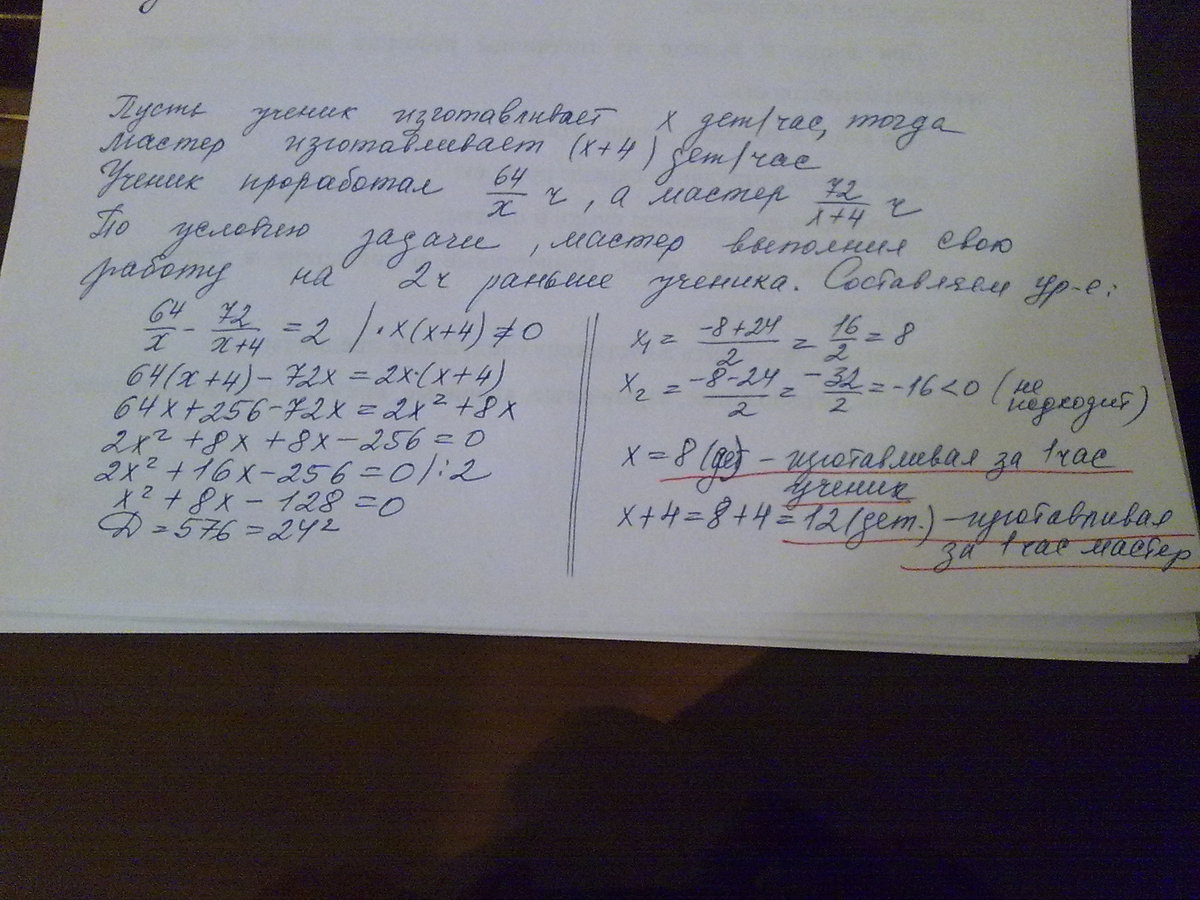 Пусть ученик изготавливает x дет/час, тогда
мастер изготавливает (x+4) дет/час
Ученик проработал 64/x ч, а мастер 72/(x+4) ч
По условию задачи, мастер выполнил свою
работу на 2ч раньше ученика. Составляем ур-е:
64/x - 72/(x+4) = 2 | · x(x+4) ≠ 0
64(x+4) - 72x = 2x·(x+4)
64x + 256 - 72x = 2x² + 8x
2x² + 8x + 8x - 256 = 0
2x² + 16x - 256 = 0 /:2
x² + 8x - 128 = 0
Д = 576 = 24²
x₁ = (-8+24)/2 = 16/2 = 8
x₂ = (-8-24)/2 = -32/2 = -16 < 0 (не подходит)
x = 8 (дет) - изготавливал за 1 час
ученик
x+4 = 8+4 = 12 (дет.) - изготавливал
за 1 час мастер